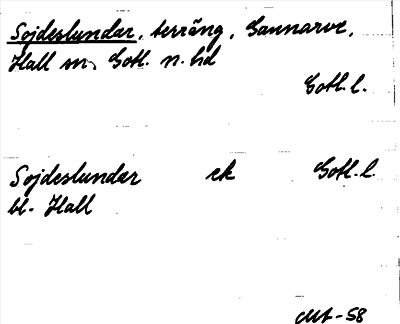 Sojdeslundar, terräng, Gannarve,
Hall sn, Gotl. n. hd
Gotl. l.
Sojdeslundar ek Gotl. l.
bl. Hall
-58